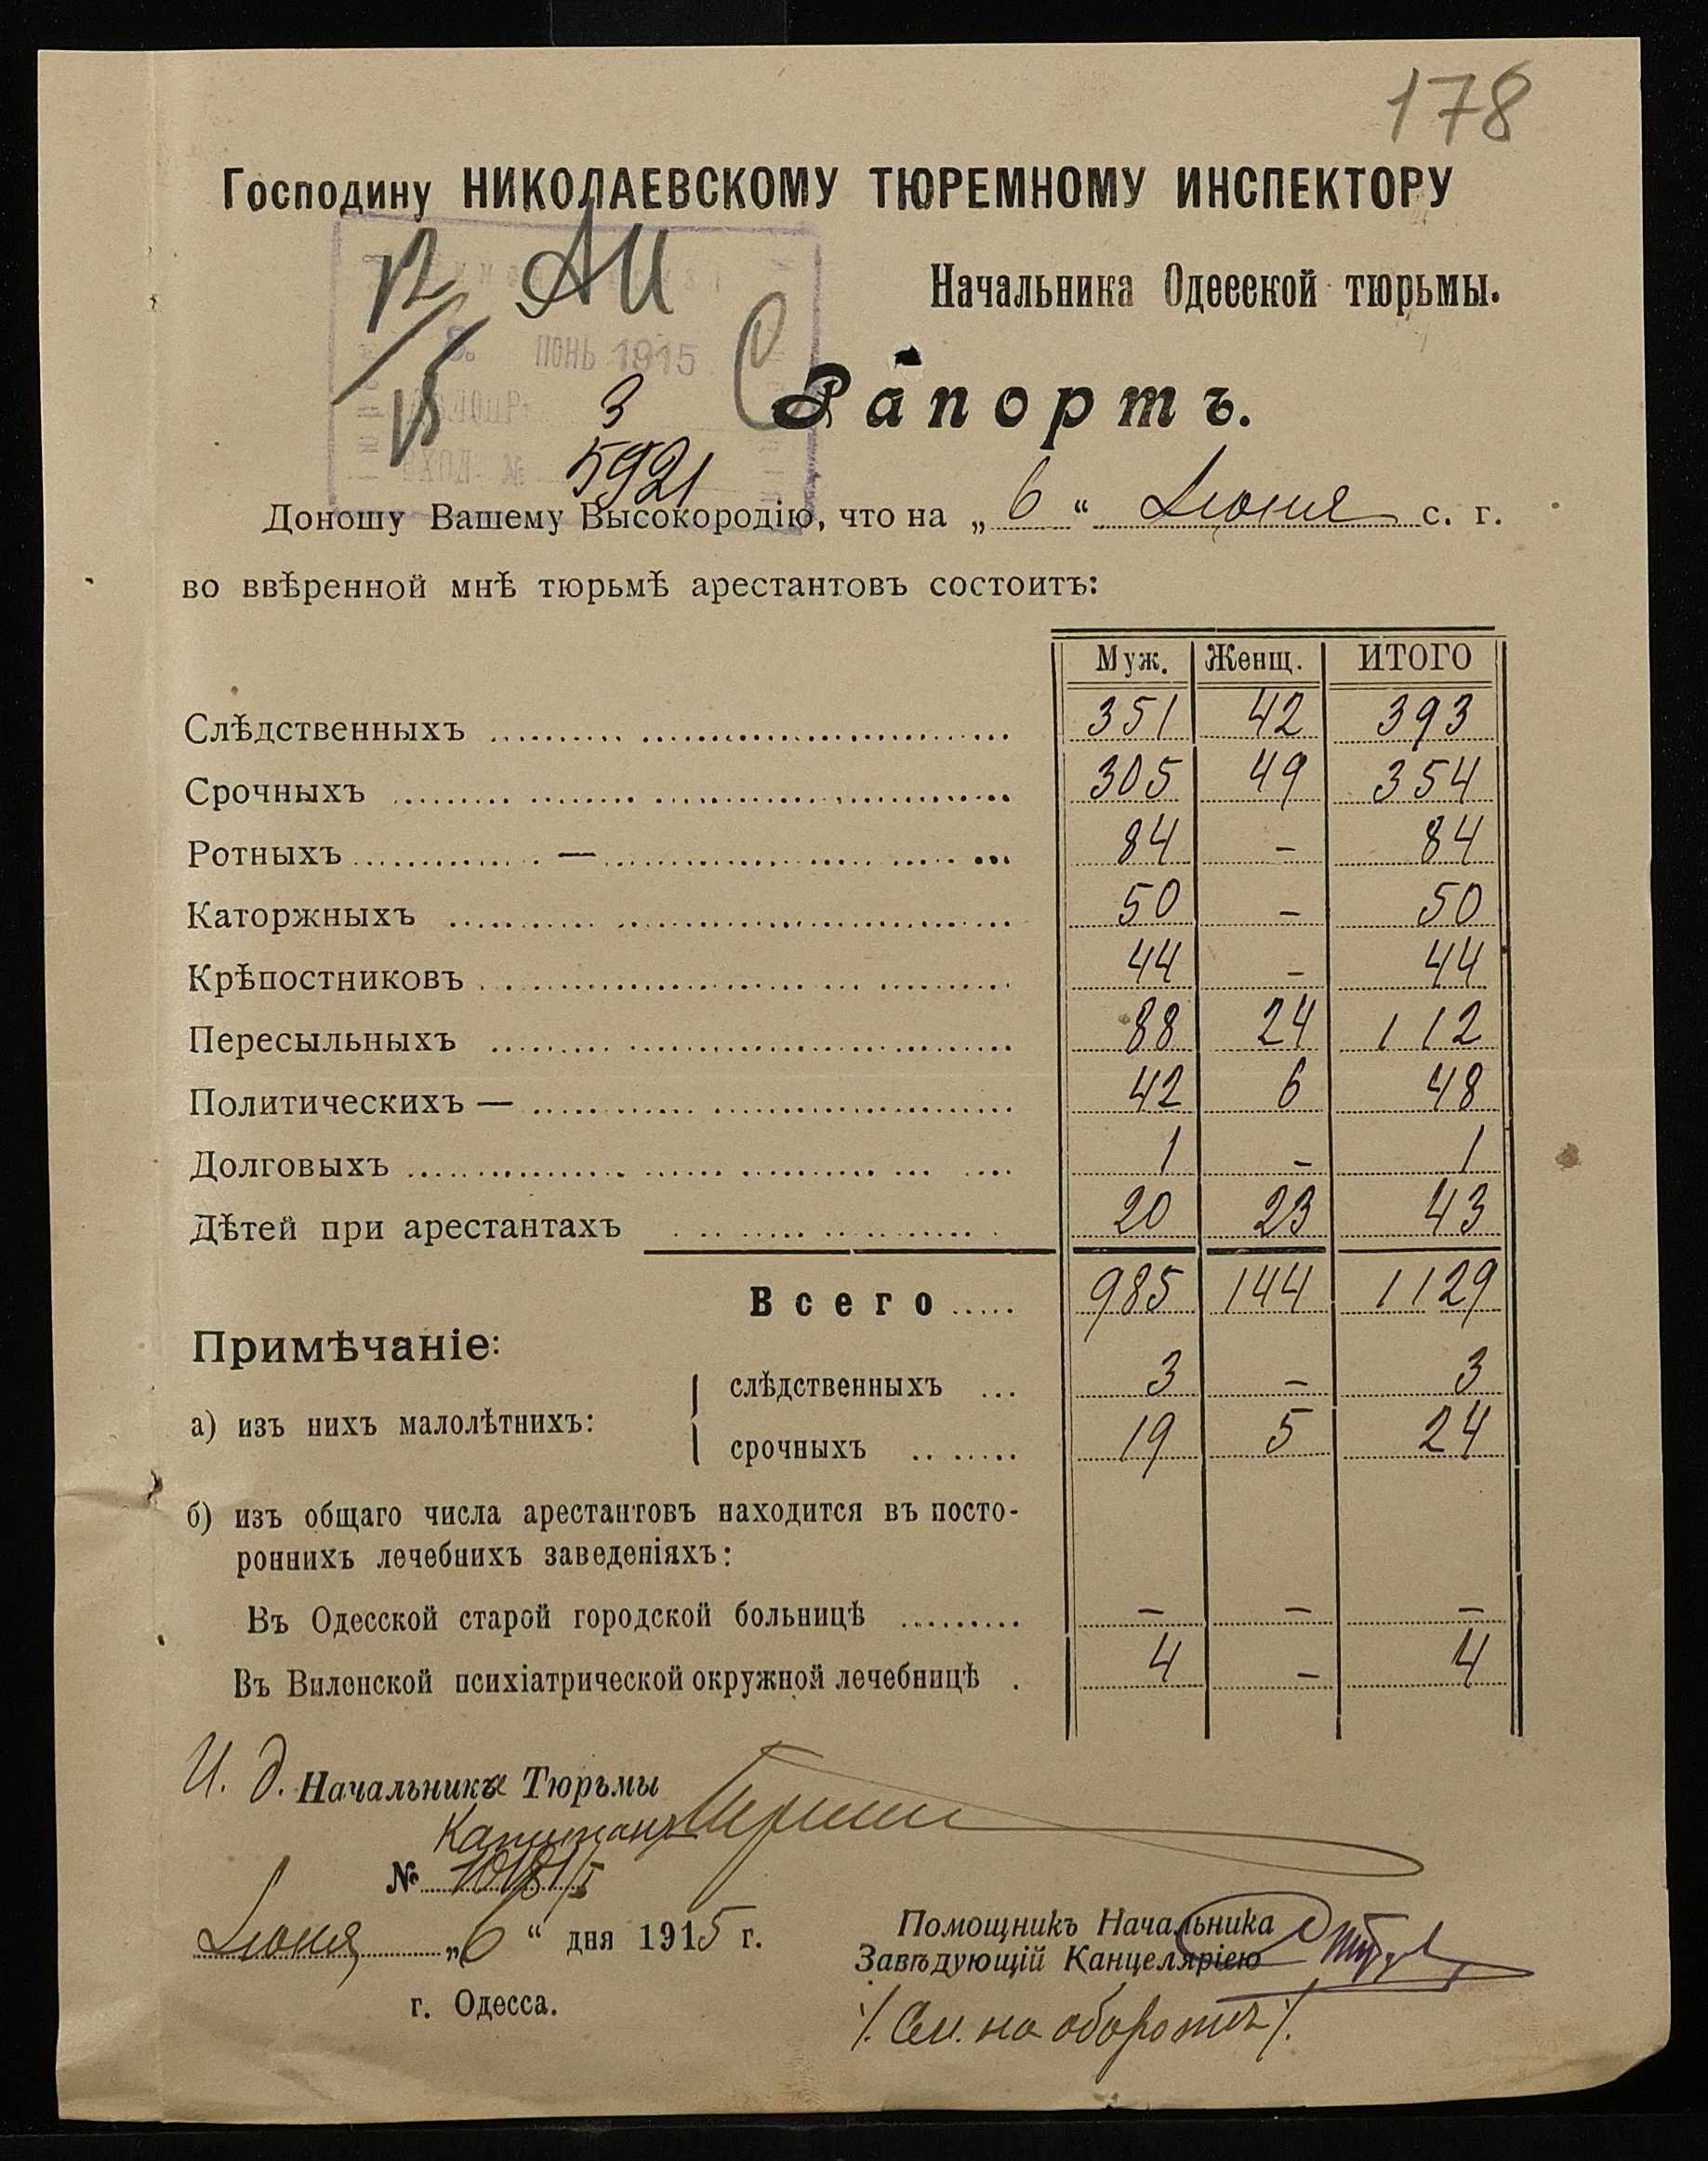 178
Господину НИКОЛАЕВСКОМУ ТЮРЕМНОМУ ИНСПЕКТОРУ
Начальника Одесской тюрьмы.
ІЮНЬ 1915
Рапортъ.
3
5921
Доношу Вашему Высокородію, что на „6“ Іюня с. г.
во ввѣренной мнѣ тюрьмѣ арестантовъ состоитъ:
Муж. Женщ. ИТОГО
Слѣдственныхъ 351 42 393
Срочныхъ 305 49 354
Ротныхъ — 84 - 84
Каторжныхъ 50 - 50
Крѣпостниковъ 44 - 44
Пересыльныхъ 88 24 112
Политическихъ — 42 6 48
Долговыхъ 1 - 1
Дѣтей при арестантахъ 20 23 43
Всего 985 144 1129
Примѣчаніе:
а) изъ нихъ малолѣтнихъ:
слѣдственныхъ 3 - 3
срочныхъ 19 5 24
б) изъ общаго числа арестантовъ находится въ посто-
роннихъ лечебнихъ заведеніяхъ:
Въ Одесской старой городской больницѣ - - -
Въ Виленской психіатрической окружной лечебницѣ 4 - 4
И. д. Начальника Тюрьмы
Капитанъ
№
Іюня „6“ дня 1915 г.
г. Одесса.
Помощникъ Начальника
Завѣдующій Канцеляріею
/. См. на оборотѣ /.